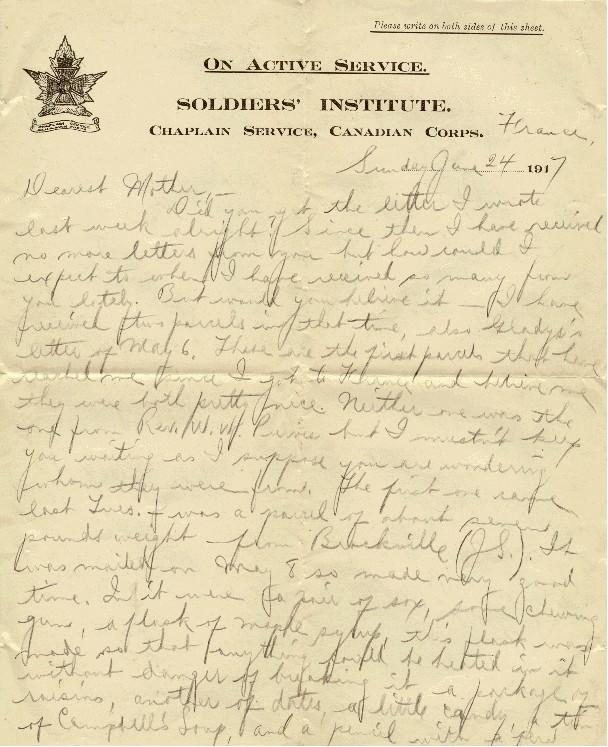 Please write on both sides of this sheet.
ON ACTIVE SERVICE.
SOLDIERS' INSTITUTE.
CHAPLAIN SERVICE, CANADIAN CORPS.
France,
Sunday June 24 1917
Dearest Mother,—
Did you get the letter I wrote
last week alright? Since then I have received
no more letters from you but how could I
expect to when I have received so many from
you lately. But would you believe it — I have
received two parcels in that time, also Gladys's
letter of May 6. These are the first parcels that have
reached me since I got to France and believe me
they were both pretty nice. Neither one was the
one from Rev. W. W. but I mustn't keep
you waiting as I suppose you are wondering
whom they were from. The first one came
last Tues. & was a parcel of about seven
pounds weight from Brockville (J.S.). It
was mailed on May 8 so made very good
time. In it were a pair of sox, some chewing
gum, a flask of maple syrup, this flask was
made so that anything could be heated in it
without danger of breaking it, a package of
raisins, another of dates, a little candy, a tin
of Campbell's Soup, and a pencil with a